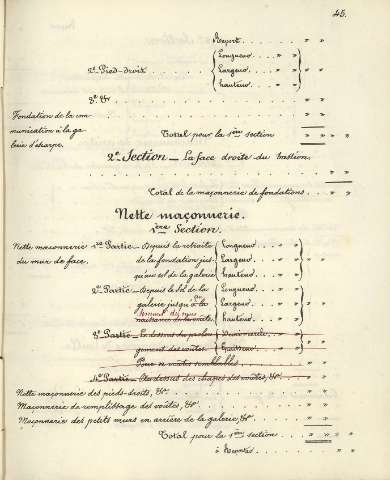 45.
Report . . . . . . . . " "
2e Pied-droit . . . . . { Longueur . . . " " }
Largeur . . . " " } " "
hauteur . . . " "
3e &c . . . . . . . . . . " "
Fondation de la com-
munication à la ga-
lerie d'écharpe.
. . . . . . . . . . " "
Total pour la 1ère section " " " "
2e Section _ La face droite du bastion.
. . . . . . . . . . " "
Total de la maçonnerie de fondations . . . " "
Nette maçonnerie.
1ère Section.
Nette maçonnerie
du mur de face.
1re Partie _ Depuis la retraite { Longueur . . . " "
de la fondation jus- { Largeur . . . " " } " "
qu'au sol de la galerie { hauteur . . . " "
2e Partie _ Depuis le sol de la { Longueur . . . " "
galerie jusqu'à la { Largeur . . . " " } " "
naissance de la voûte { hauteur . . . " "
3e Partie _ Au dessus du prolon-
gement des voûtes. { hauteur . . . " "
Pour n voûtes semblables . . . " "
4e Partie _ Au dessus des chapes des voûtes, &c. . . " "
Nette maçonnerie des pieds-droits, &c . . . . . " "
Maçonnerie de remplissage des voûtes, &c . . . . . " "
Maçonnerie des petits murs en arrière de la galerie, &c . . " "
Total pour la 1ère section . . . " "
à Reporter . . . . " "